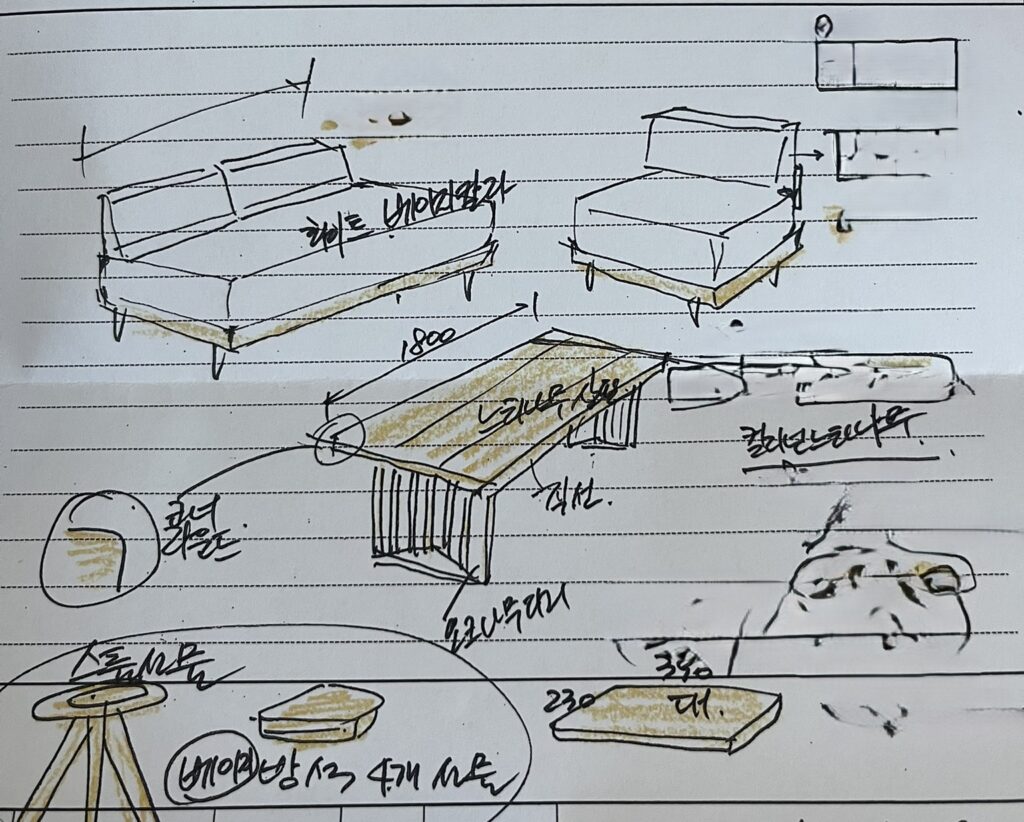 화이트 베이지컬러
1800
느티나무 상판
컬러넌느티나무.
직선.
코너
라운드
오크나무다리
스툴선물
230
340
대.
베이지 방석 4개 선물